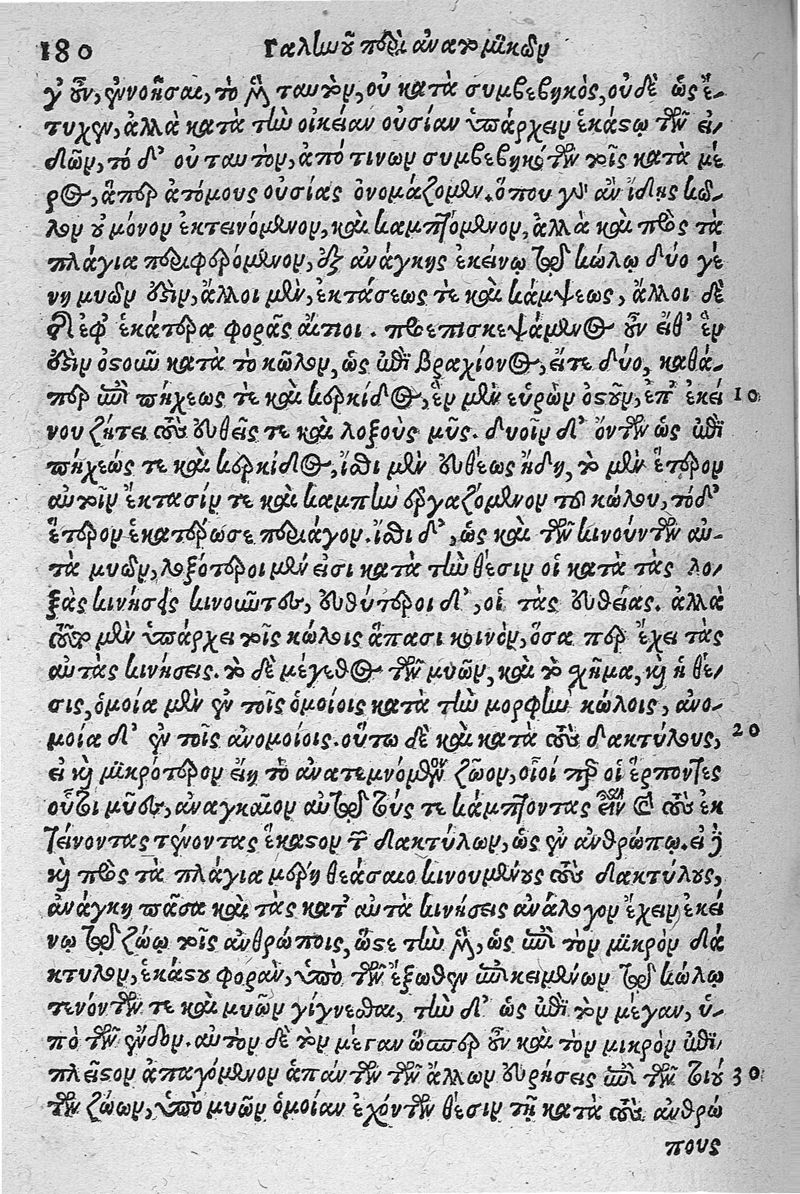 180 Γαλίωοῦ περὶ ἀνατομικῶν
γ' οὖν, ἐννοῆσαι, τὸ μὴ ταυτὸν, οὐ κατὰ συμβεβηκὸς, οὐδὲ ὡς ἔ-
τυχεν, ἀλλὰ κατὰ τὴν οἰκείαν οὐσίαν ὑπάρχειν ἑκάστῳ τῶν εἰ-
δῶν, τὸ δ' οὐ ταυτὸν, ἀπό τινων συμβεβηκό των τοῖς κατὰ μέ
ρος, ἅπερ ἀτόμους οὐσίας ὀνομάζομεν. ὅπου γὰρ ἂν ἴδῃς κῶ-
λον οὐ μόνον ἐκτεινόμενον, καὶ καμπτόμενον, ἀλλὰ καὶ πρὸς τὰ
πλάγια περιφερόμενον, ἐξ ἀνάγκης ἐκείνῳ τῷ κώλῳ δύο γέ
νη μυῶν ἐστιν, ἄλλοι μὲν, ἐκτάσεώς τε καὶ κάμψεως, ἄλλοι δὲ
τῆς ἐφ' ἑκάτερα φορᾶς αἴτιοι. προεπισκεψάμενος οὖν εἴθ' ἓν
ἐστιν ὀστοῦν κατὰ τὸ κῶλον, ὡς ἐπὶ βραχίονος, εἴτε δύο, καθά-
περ ἐπὶ πήχεώς τε καὶ κερκίδος, ἓν μὲν εὑρὼν ὀστοῦν, ἐπ' ἐκεί 10
νου ζήτει τοὺς εὐθεῖς τε καὶ λοξοὺς μῦς. δυοῖν δ' ὄντων ὡς ἐπὶ
πήχεώς τε καὶ κερκίδος, ἴσθι μὲν εὐθέως ἤδη, τὸ μὲν ἕτερον
αὐτοῖν ἔκτασίν τε καὶ καμπὴν ἐργαζόμενον τοῦ κώλου, τὸ δ'
ἕτερον ἑκατέρωσε περιάγον. ἴσθι δ', ὡς καὶ τῶν κινούντων αὐ-
τὰ μυῶν, λοξότεροι μέν εἰσι κατὰ τὴν θέσιν οἱ κατὰ τὰς λο-
ξὰς κινήσεις κινοῦντες, εὐθύτεροι δ', οἱ τὰς εὐθείας. ἀλλὰ
τοῦτο μὲν ὑπάρχει τοῖς κώλοις ἅπασι κοινὸν, ὅσα περ ἔχει τὰς
αὐτὰς κινήσεις. τὸ δὲ μέγεθος τῶν μυῶν, καὶ τὸ σχῆμα, καὶ ἡ θέ-
σις, ὁμοία μὲν ἐν τοῖς ὁμοίοις κατὰ τὴν μορφὴν κώλοις, ἀνο-
μοία δ' ἐν τοῖς ἀνομοίοις. οὕτω δὲ καὶ κατὰ τοὺς δακτύλους, 20
εἰ καὶ μικρότερον εἴη τὸ ἀνατεμνόμενον ζῶον, οἷοί περ οἱ ἕρποντες
οὗτοι μῦες, ἀναγκαῖον αὐτῷ τούς τε κάμπτοντας εἶναι καὶ τοὺς ἐκ
τείνοντας τένοντας ἕκαστον τῶν δακτύλων, ὡς ἐν ἀνθρώπῳ. εἰ δὲ
καὶ πρὸς τὰ πλάγια μέρη θεάσαιο κινουμένους τοὺς δακτύλους,
ἀνάγκη πᾶσα καὶ τὰς κατ' αὐτὰ κινήσεις ἀνάλογον ἔχειν ἐκεί
νῳ τῷ ζώῳ τοῖς ἀνθρώποις, ὥστε τὴν μὲν, ὡς ἐπὶ τὸν μικρὸν δά
κτυλον, ἑκάστου φορὰν, ὑπὸ τῶν ἔξωθεν ἐπικειμένων τῷ κώλῳ
τενόντων τε καὶ μυῶν γίγνεσθαι, τὴν δ' ὡς ἐπὶ τὸν μέγαν, ὑ-
πὸ τῶν ἔνδον. αὐτὸν δὲ τὸν μέγαν ὥσπερ οὖν καὶ τὸν μικρὸν ἐπὶ
πλεῖστον ἀπαγόμενον ἁπάντων τῶν ἄλλων εὑρήσεις ἐπὶ τῶν τοιού 30
των ζώων, ὑπὸ μυῶν ὁμοίαν ἐχόντων θέσιν τῇ κατὰ τοὺς ἀνθρώ
πους